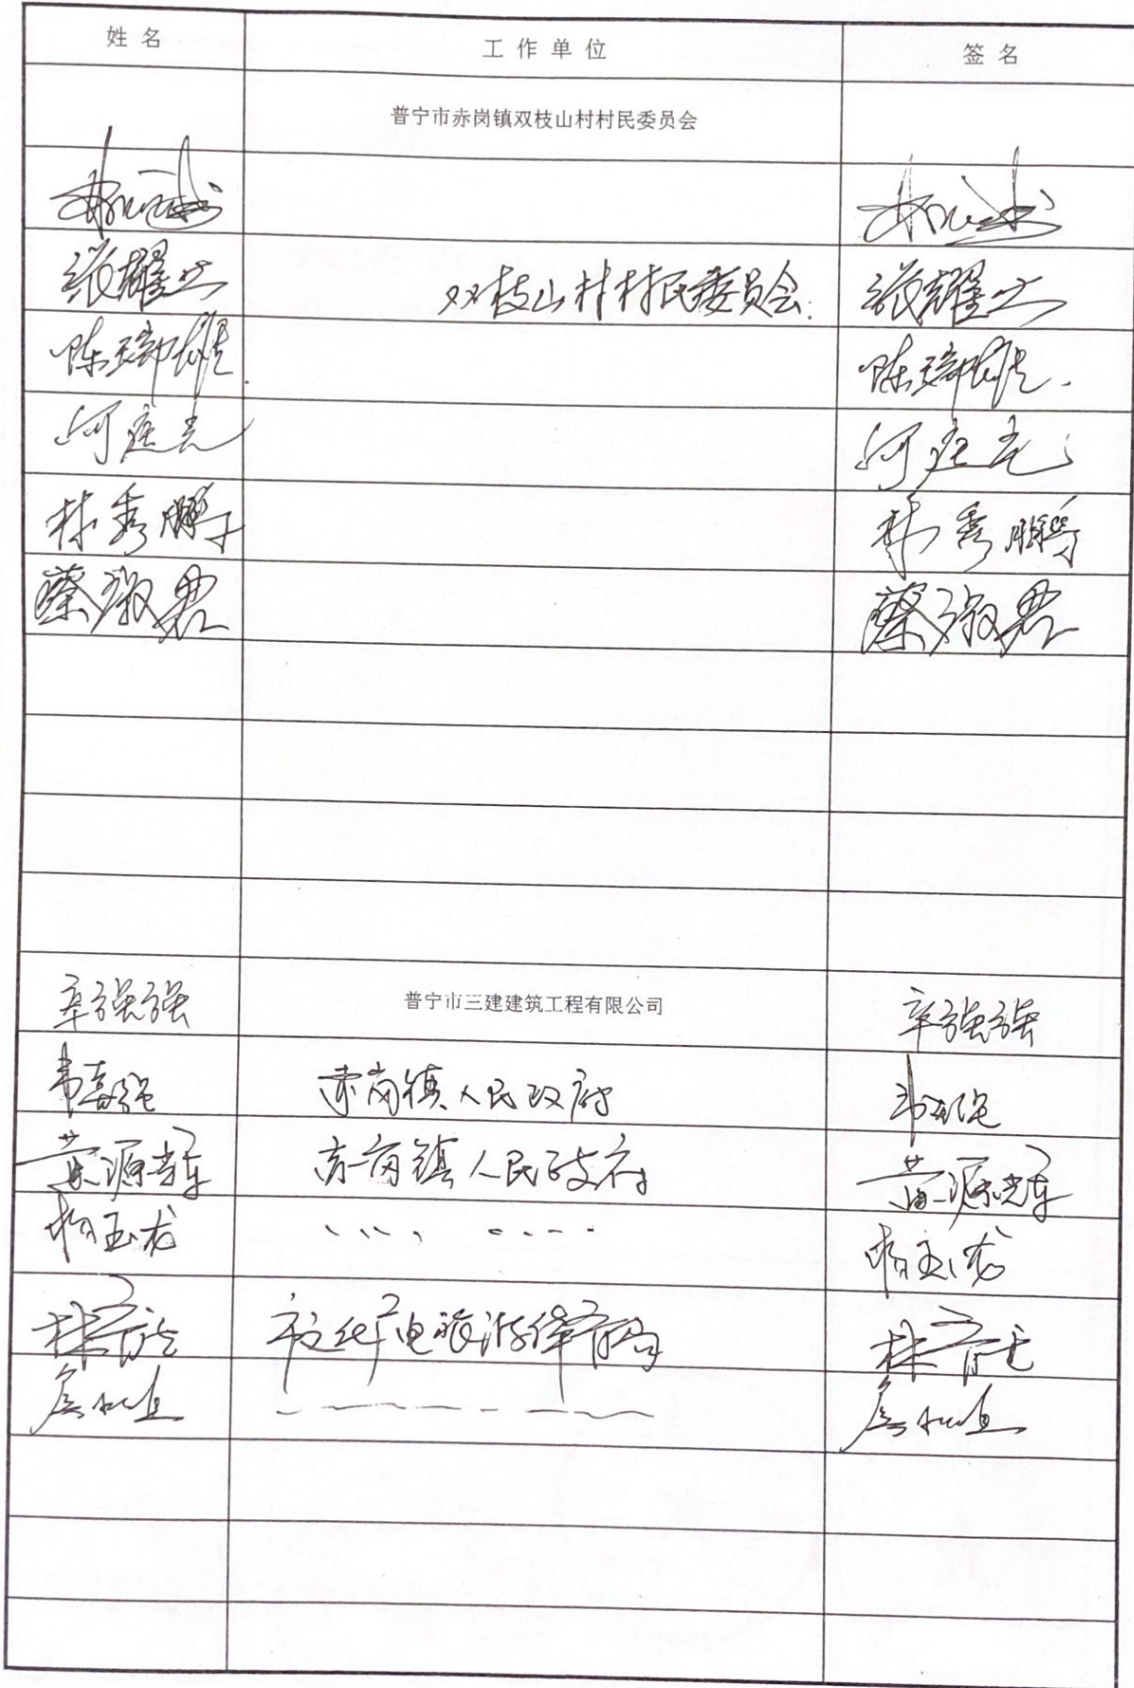 姓名 工作单位 签名
普宁市赤岗镇双枝山村村民委员会
张耀文 双枝山村村民委员会. 张耀文
陈瑞雄. 陈瑞雄.
何庭光 何庭光
林秀腾 林秀腾
蔡淑君 蔡淑君
辛强强 普宁市三建建筑工程有限公司 辛强强
赤岗镇人民政府
黄源 赤岗镇人民政府 黄源
杨玉龙 杨玉龙
林 市文化广电旅游体育局 林